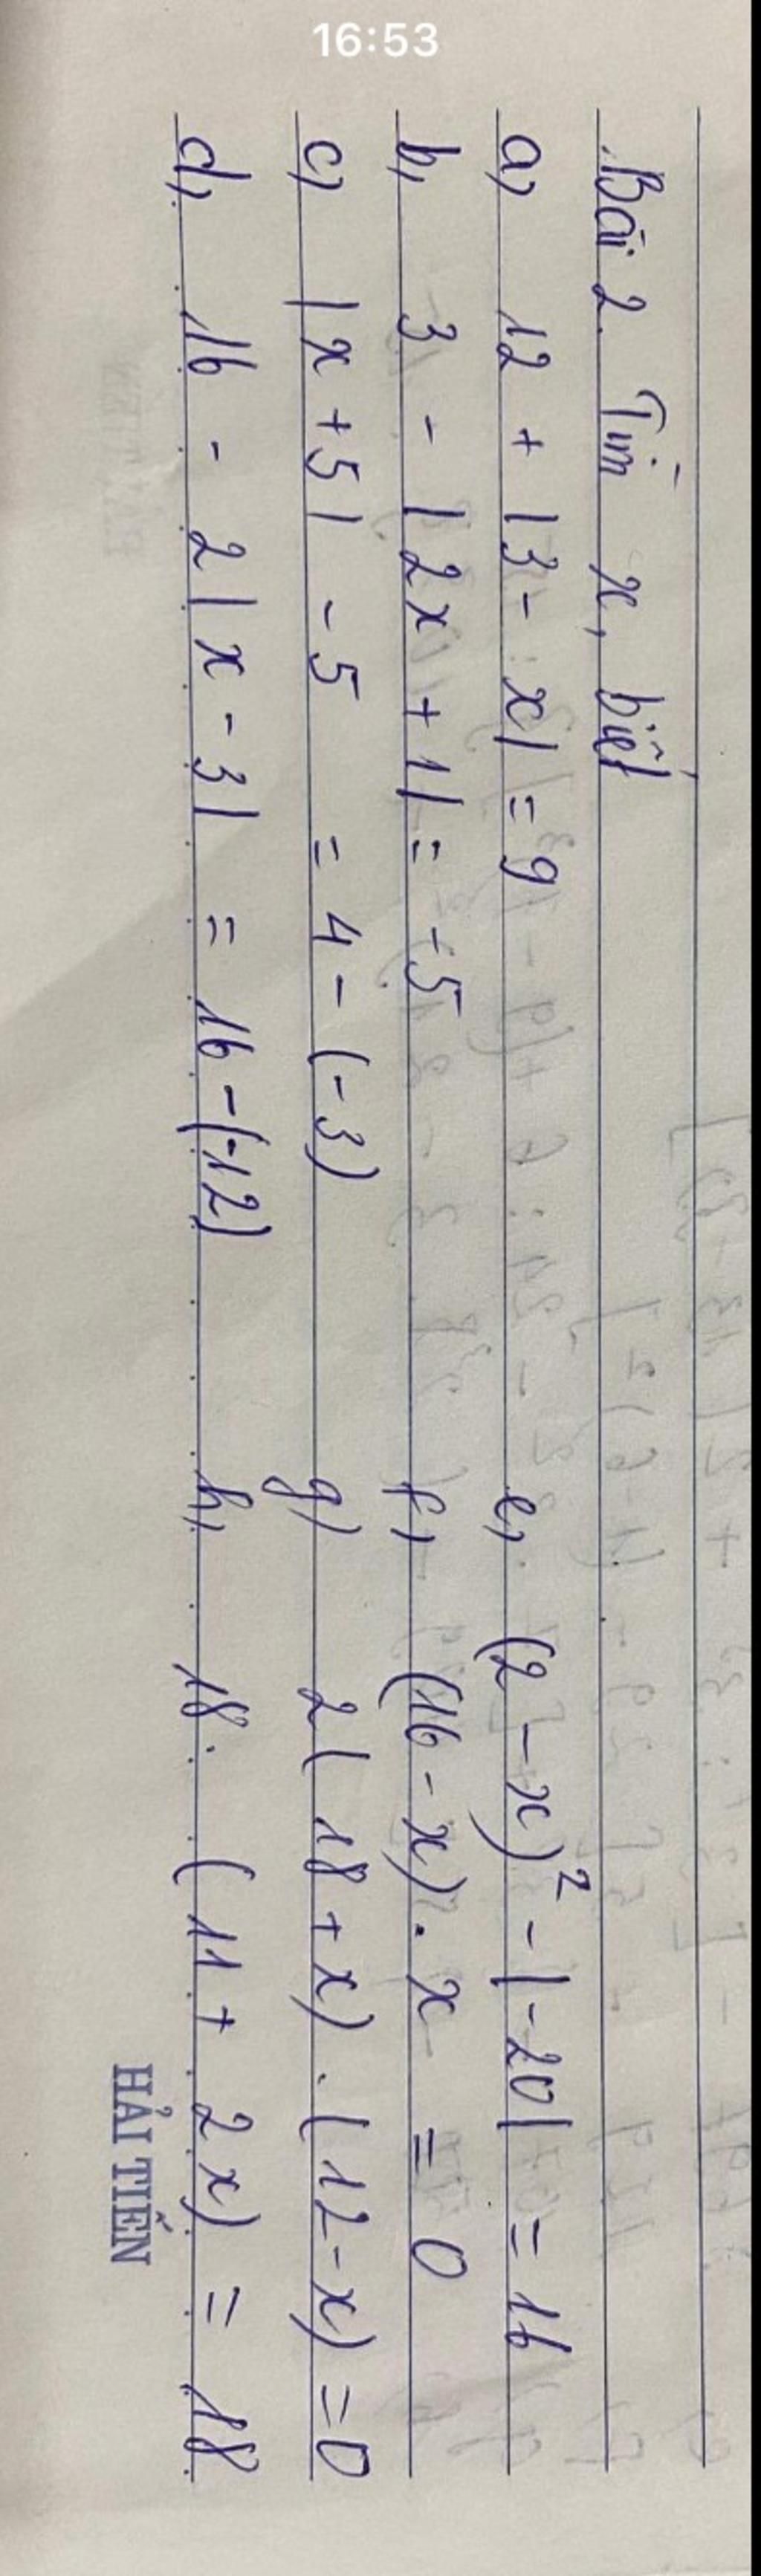 16:53
Bài 2. Tìm x, biết
a, 12 + |3 - x| = 9 e, (2 - x)² - |-20| = 16
b, 3 - |2x + 1| = -5 f, (16 - x) . x = 0
c) |x + 5| - 5 = 4 - (-3) g) 2(18 + x) . (12 - x) = 0
d, 16 - 2|x - 3| = 16 - (-12) h, 18 . (11 + 2x) = 18
HẢI TIẾN